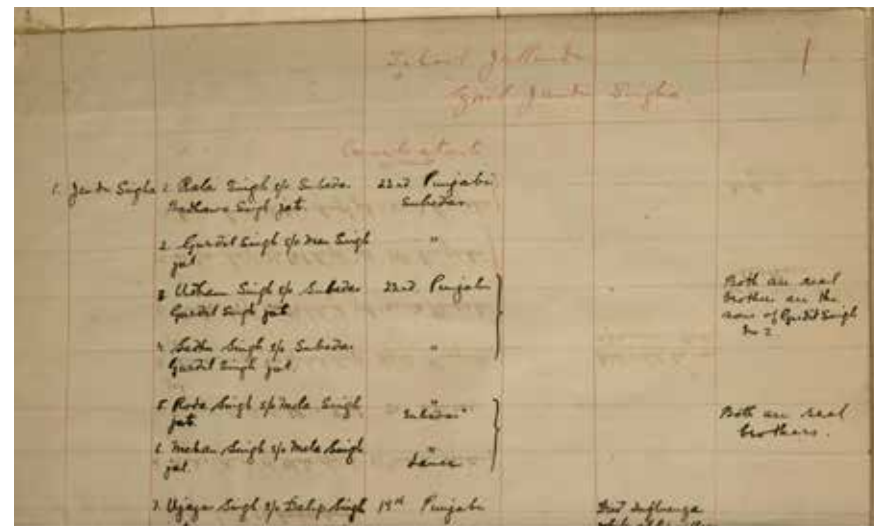 Tehsil Jullundur
Zail Jandu Singha
Combatants
1. Jandu Singha 1. Rala Singh s/o Subedar 22nd Punjabi
Singh jat. Subedar.
2. Gurdit Singh s/o Man Singh "
jat
3 Udham Singh s/o Subedar 22nd Punjabi Both are real
Gurdit Singh jat brother are the
sons of Gurdit Singh
No 2
4. Sadhu Singh s/o Subedar "
Gurdit Singh jat.
5. Roda Singh s/o Mela Singh " Both are real
jat. Subedar brothers.
6. Mehan Singh s/o Mela Singh "
jat Lance
7. Ujagar Singh s/o Dalip Singh 19th Punjabi Died Influenza